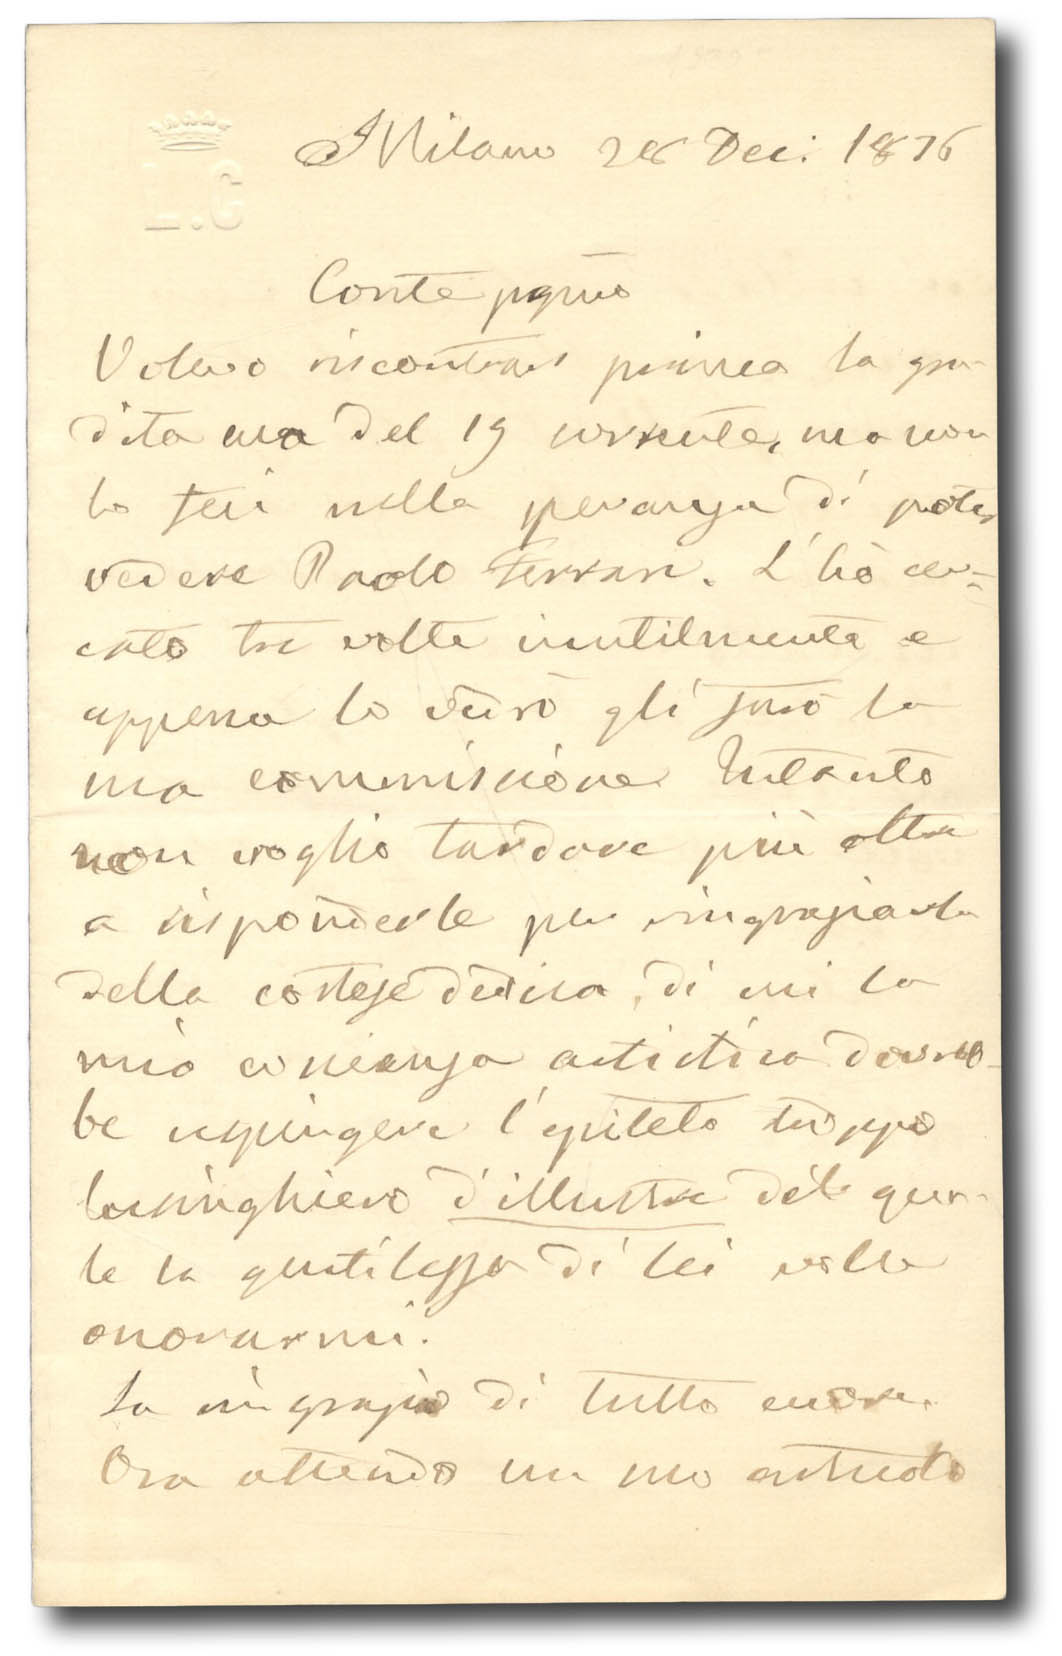 L.G
Milano 28 Dec. 1876
Conte pgmo
Volevo riscontrar prima la gra-
dita sua del 19 corrente, ma non
lo feci nella speranza di poter
vedere Paolo Ferrari. L'hò cer-
cato tre volte inutilmente e
appena lo vedrò gli farò la
sua commissione. Intanto
non voglio tardare più oltre
a risponderle per ringraziarla
della cortese dedica, di cui la
mia coscienza artistica dovreb-
be respingere l'epiteto troppo
lusinghiero d'illustre del qua-
le la gentilezza di lei volle
onorarmi.
La ringrazio di tutto cuore.
Ora attendo un suo articolo